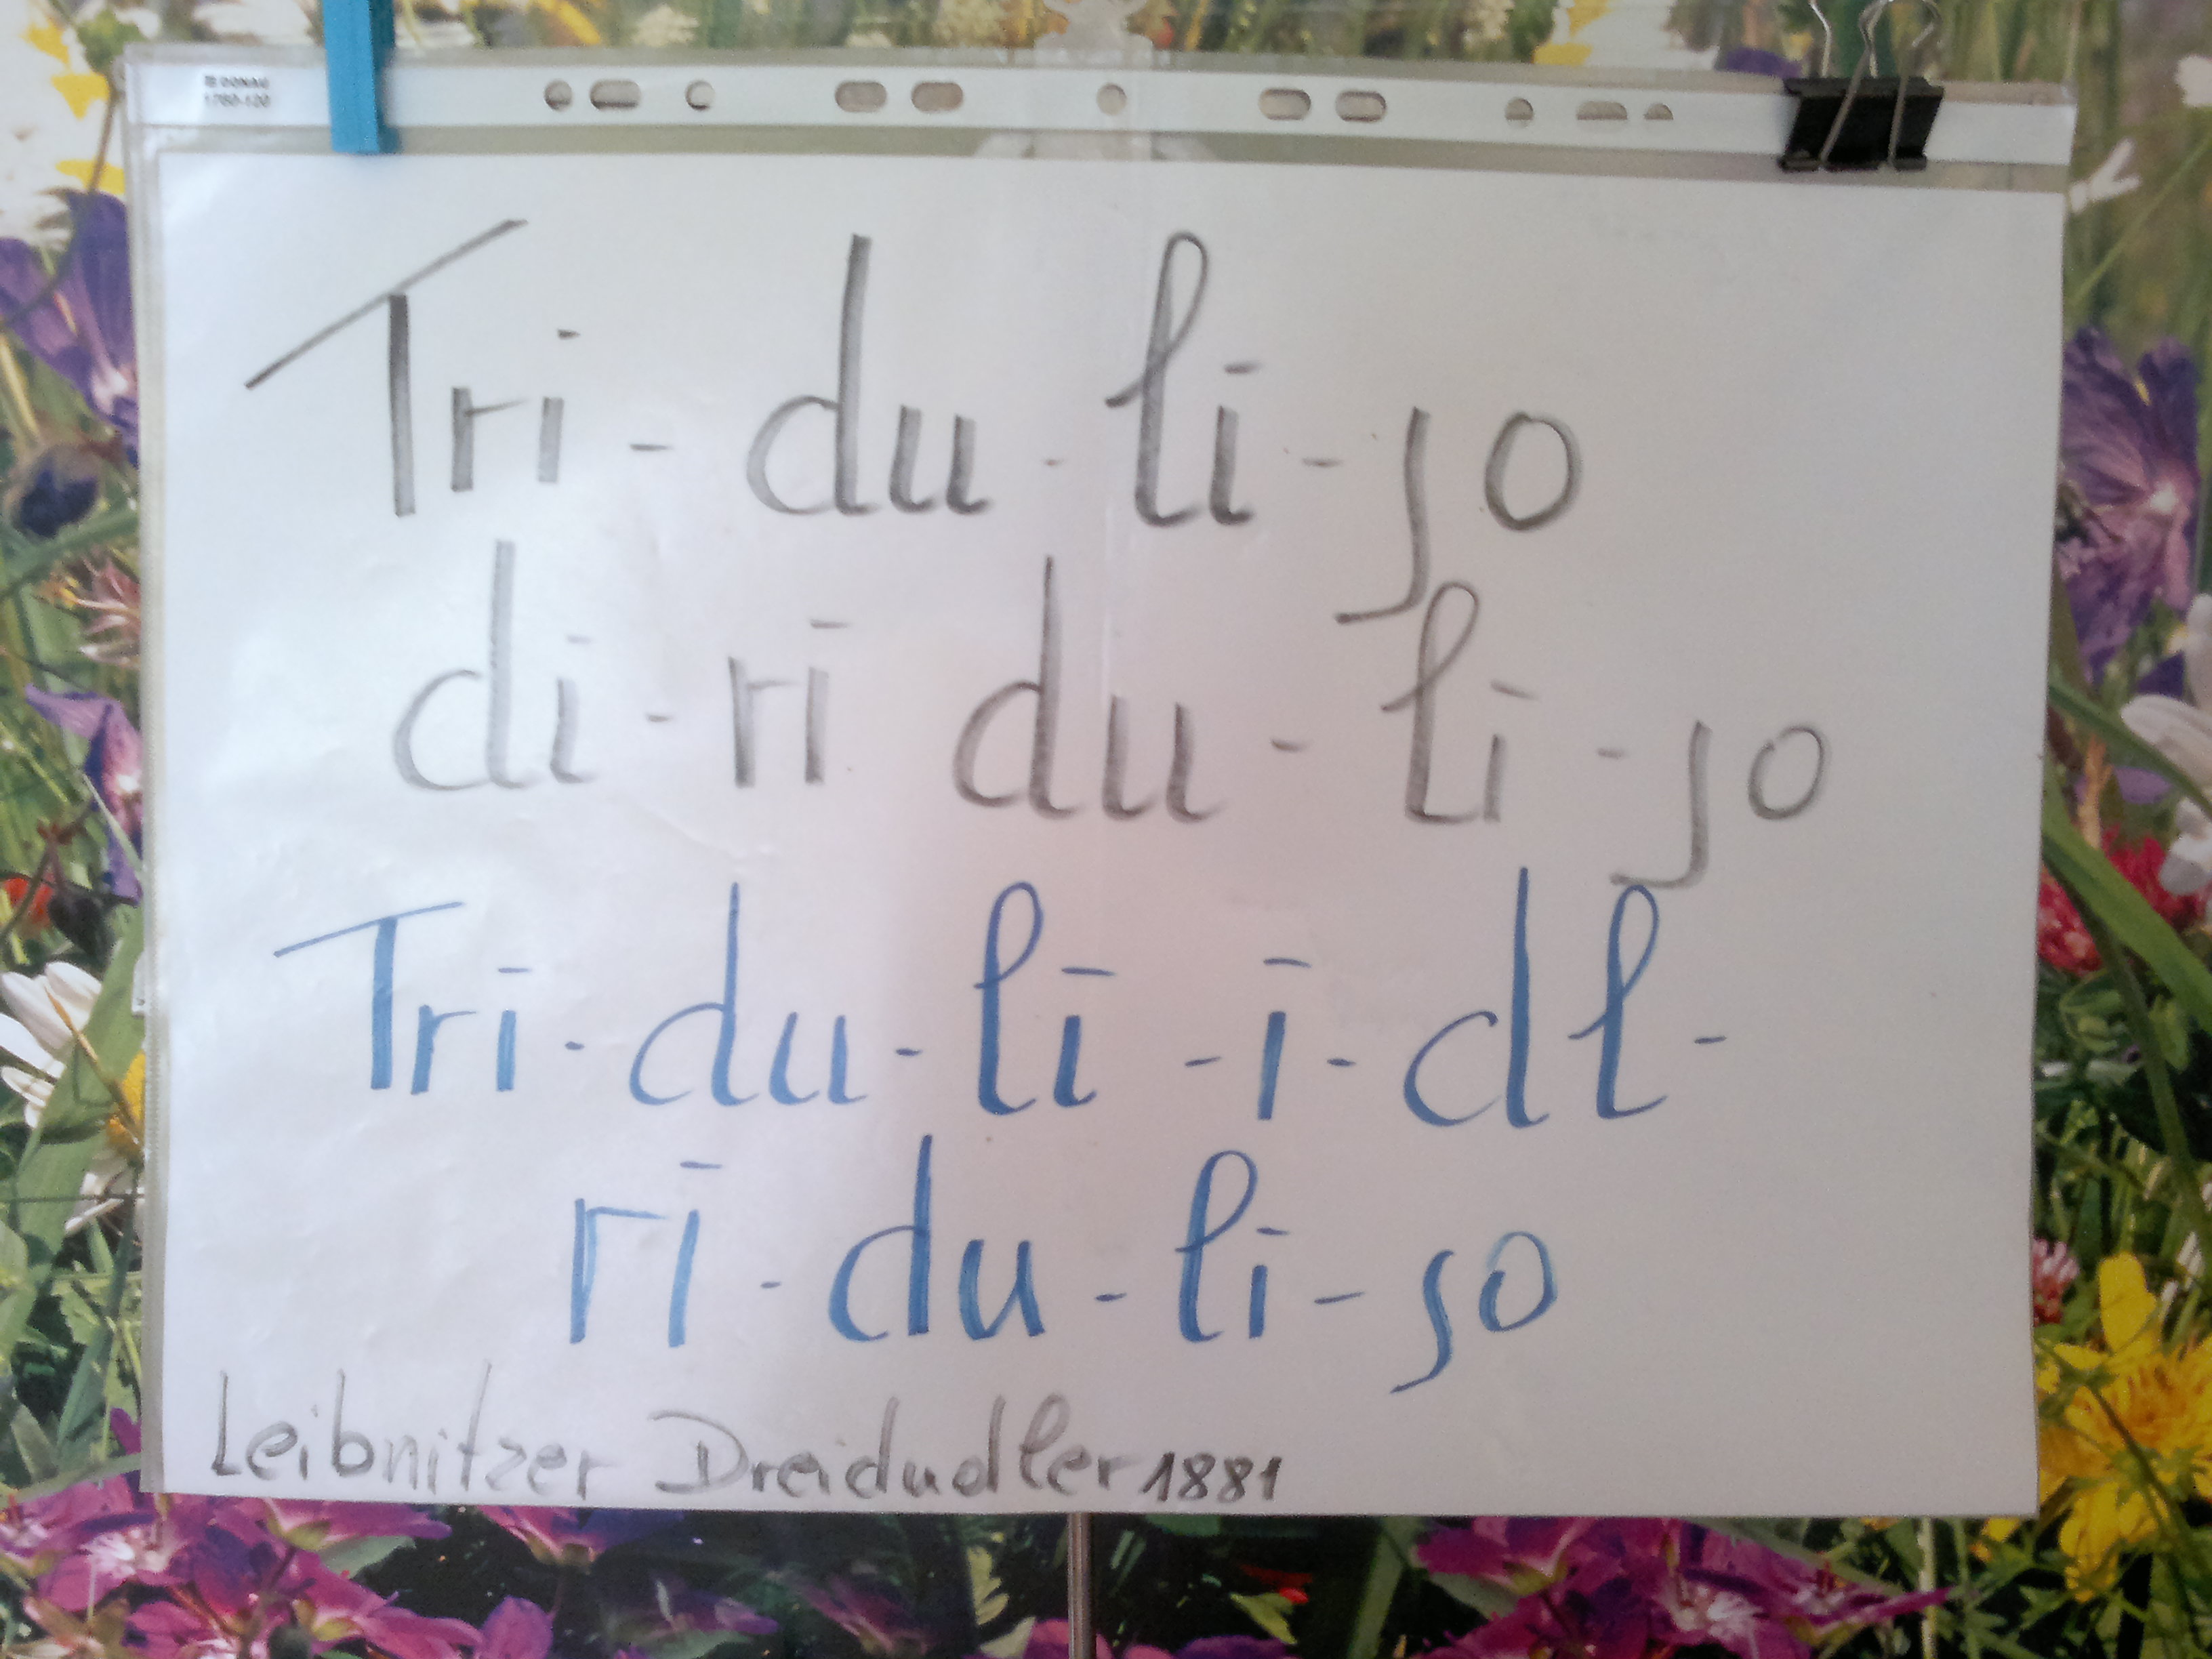 DONAU
1760-100
Tri - du - li - jo
di - ri du - li - jo
Tri - du - li - i - dl -
ri - du - li - jo
Leibnitzer Dreidudler 1881